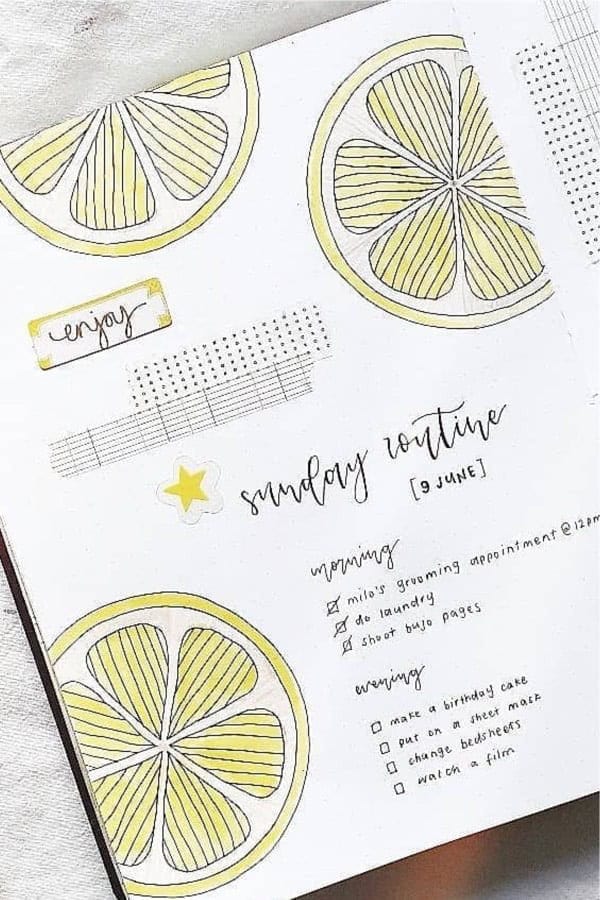 enjoy
sunday routine
[9 JUNE]
morning
milo's grooming appointment @ 12pm
do laundry
shoot bujo pages
evening
make a birthday cake
put on a sheet mask
change bedsheets
watch a film